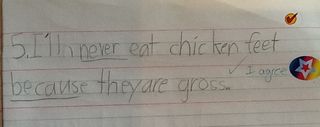 5. I'll never eat chicken feet
because they are gross.
✓ I agree